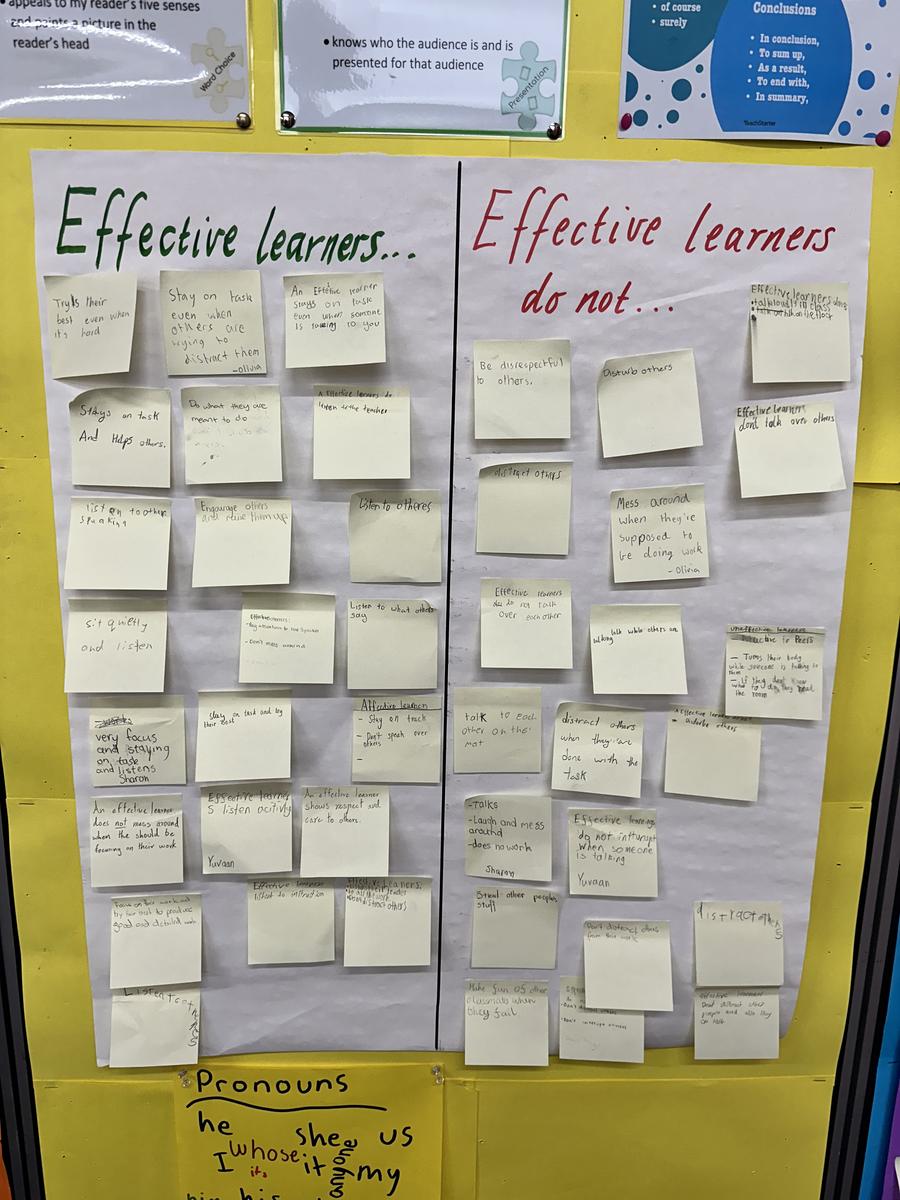 appeals to my reader's five senses
and paints a picture in the
reader's head
Word Choice
• knows who the audience is and is
presented for that audience
Presentation
• of course
• surely
Conclusions
• In conclusion,
• To sum up,
• As a result,
• To end with,
• In summary,
TeachStarter
Effective learners...
their
best even when
it's hard
Stay on task
even when
others are
trying to
distract them
-olivia
An Effective learner
stays on task
even when someone
is talking to you
Stays on task
And Helps others.
Do what they are
meant to do
A Effective learners do
listen to the teacher
listen to other
Encourage others
and raise them up
Listen to otheres
sit quietly
and listen
- Don't mess around
Listen to what others
say
very focus
and staying
on task
and listens
Sharon
stay on task and
their best
Affective learners
- Stay on track
- Don't speak over
others
-
An effective learner
does not mess around
when the should be
focusing on their work
Effective learner
s listen acitivly
Yuvaan
An effective learner
shows respect and
care to others.
Focus on their work and
try their best to produce
good and detailed work
Effective learners
listen to instruction
Effective learners:
• Don't distract others
Effective learners
do not...
Be disrespectful
to others.
Disturb others
Effective learners
Effective learners
don't talk over others
distract others
Mess around
when they're
supposed to
be doing work
- Olivia
Effective learners
do not talk
over each other
talk while others are
talking
uneffective learners
- Turns their body
while someone is talking to
them
- If they don't know
what to do, they
the room
talk to each
other on the
mat
distract others
when they are
done with the
task
-Talks
-Laugh and mess
around
-does no work
Sharon
Effective learners
do not intturupt
when someone
is talking
Yuvaan
Steal other peoples
stuff
Don't distract others
from their work
distract others
Make fun of other
classmates when
they fail.
Effective learners
Pronouns
he
she
us
I
whose
it
its
anyone
my
him
his